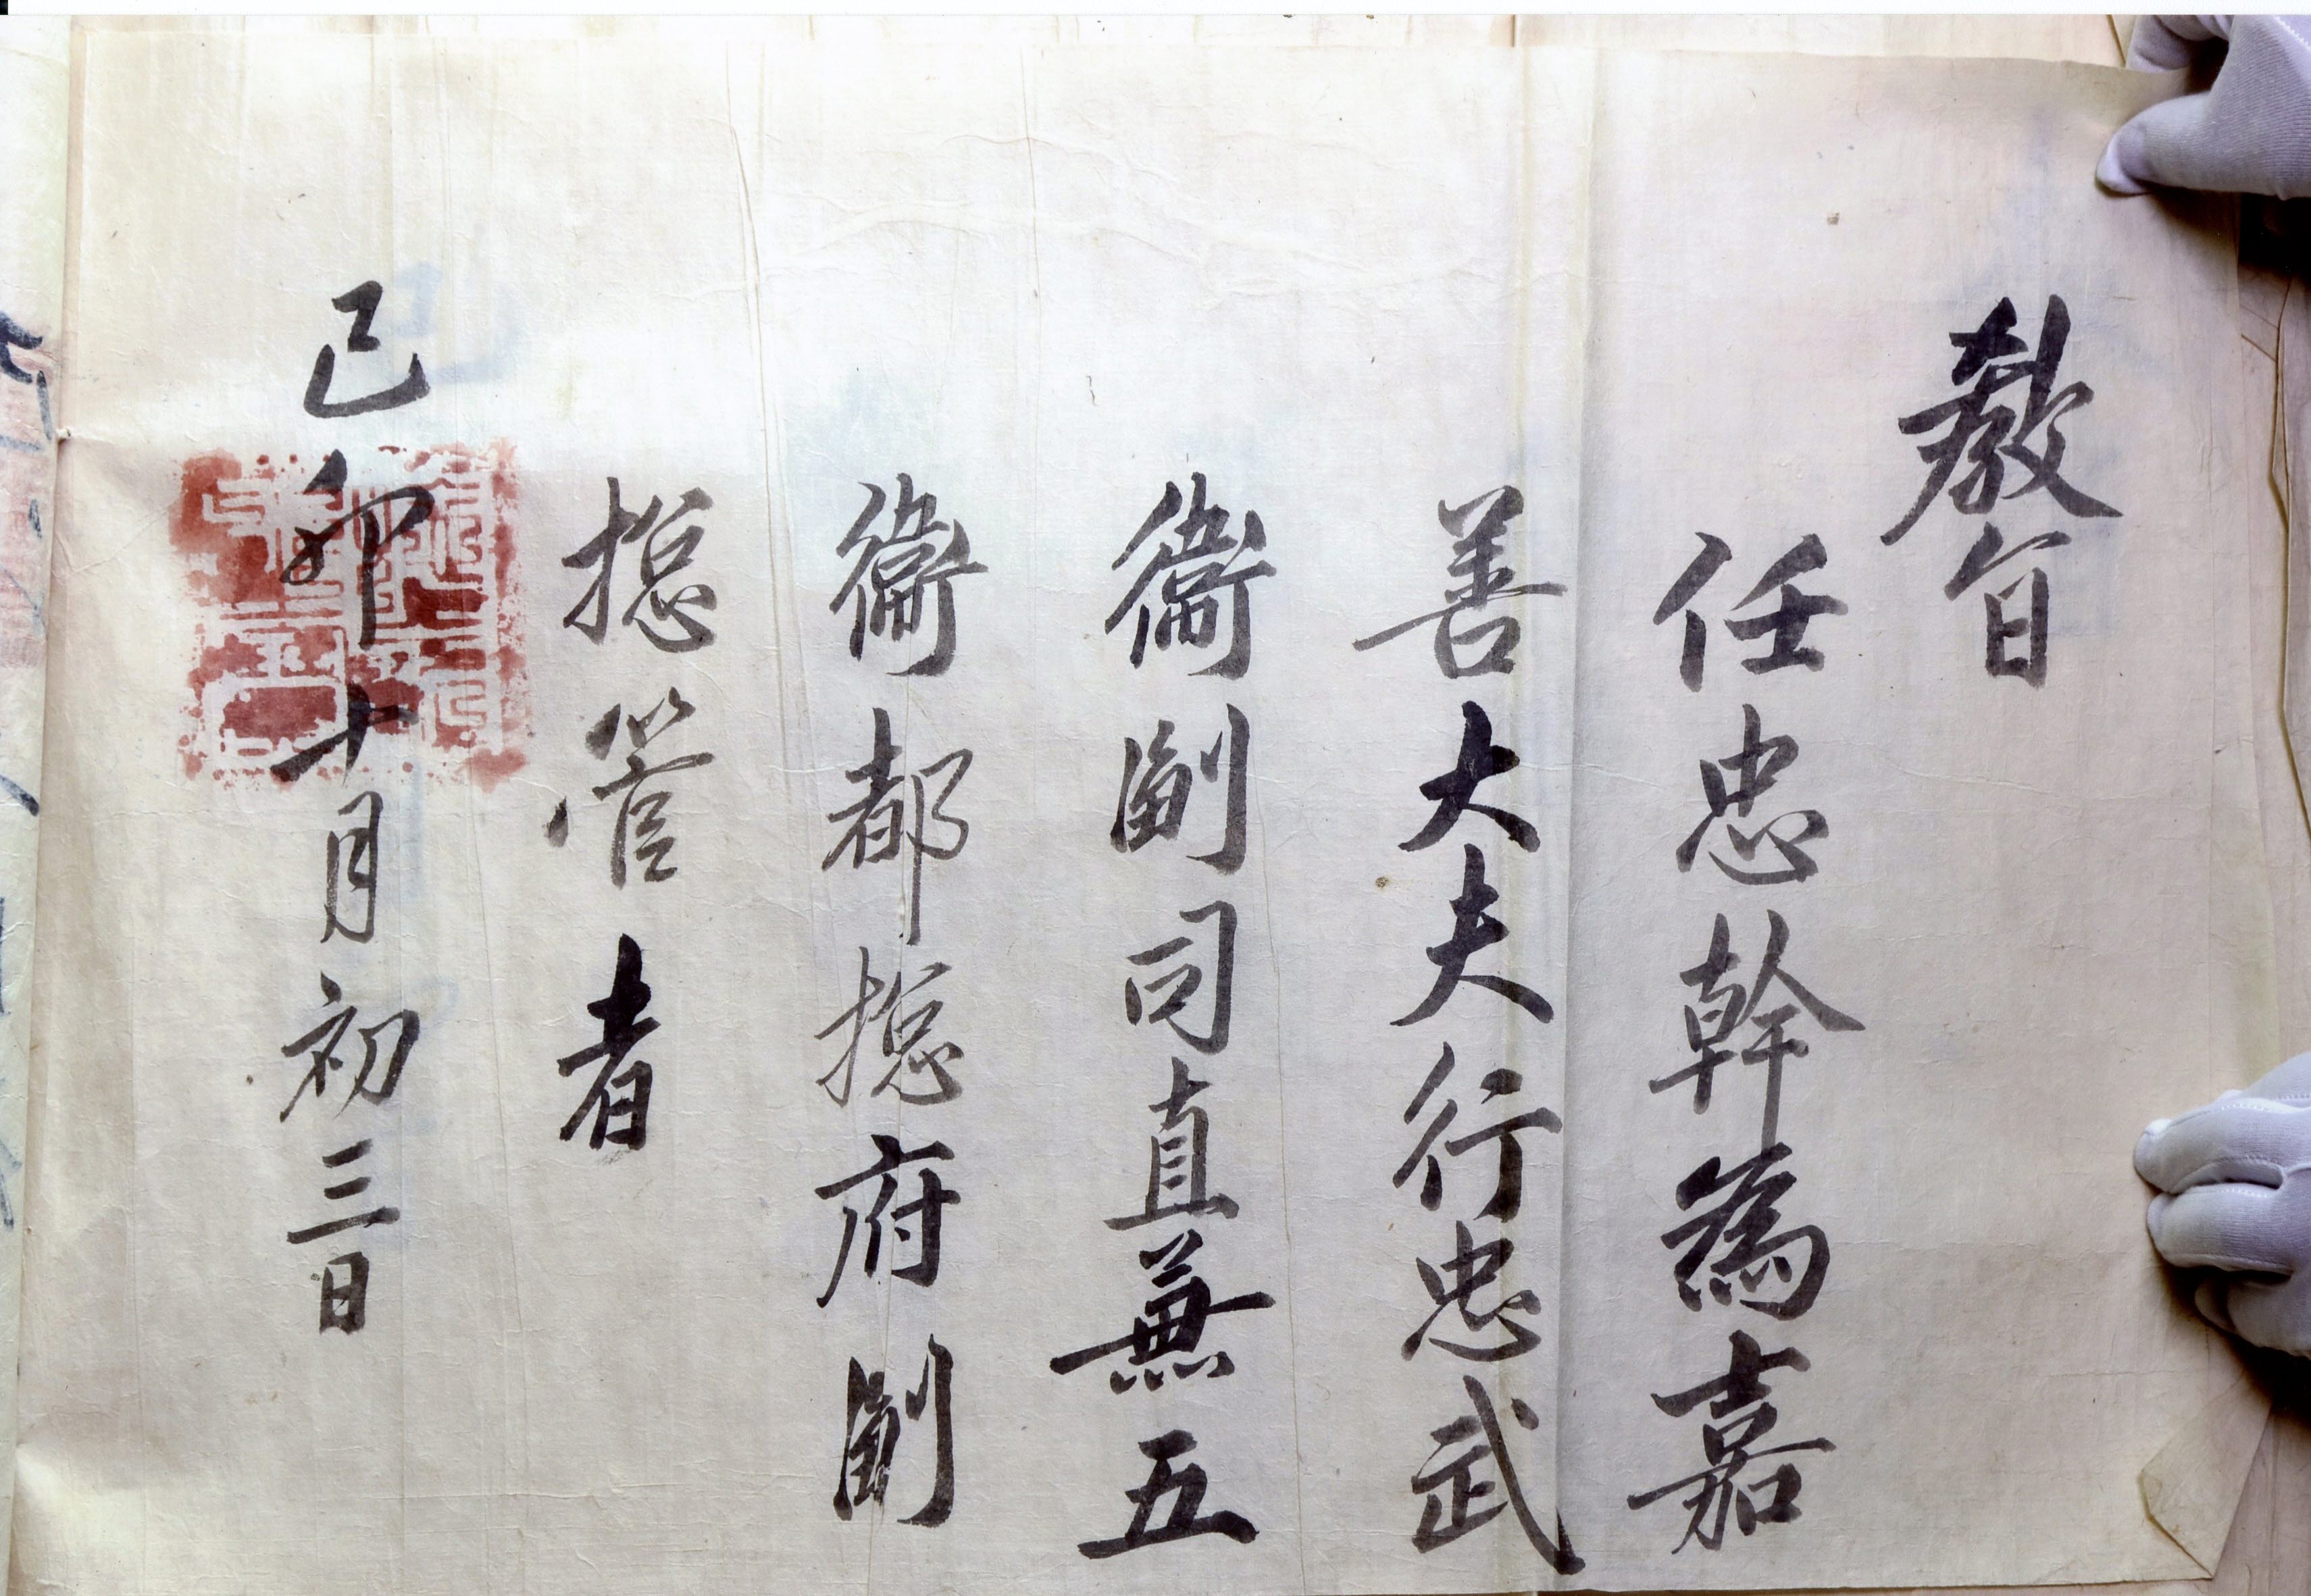 教旨
任忠幹為嘉
善大夫行忠武
衛副司直兼五
衛都摠府副
摠管者
己卯十月初三日